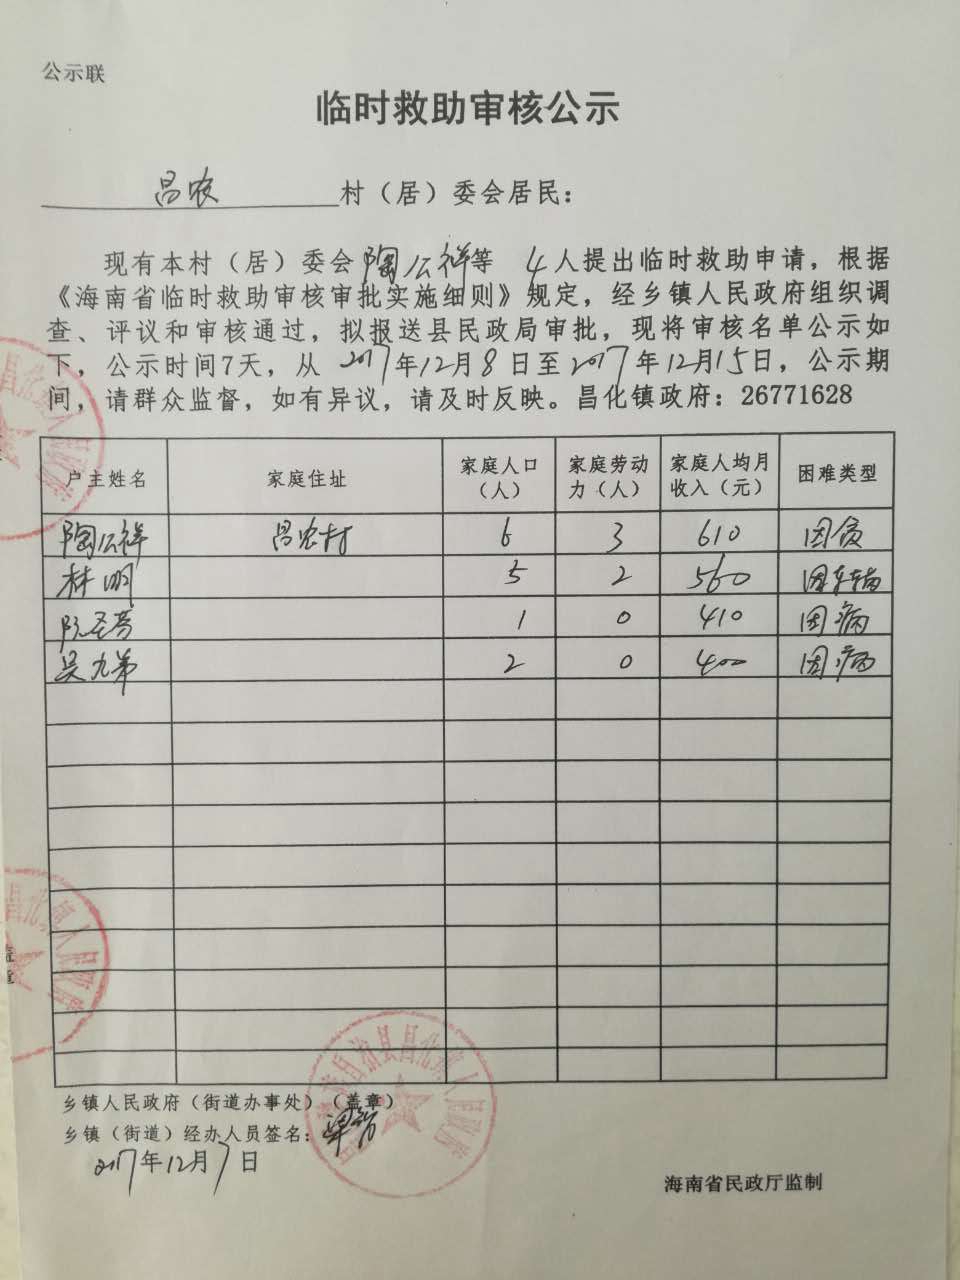 公示联
临时救助审核公示
昌农村（居）委会居民：
现有本村（居）委会陶公祥等 4人提出临时救助申请，根据
《海南省临时救助审核审批实施细则》规定，经乡镇人民政府组织调
查、评议和审核通过，拟报送县民政局审批，现将审核名单公示如
下，公示时间7天，从 2017年12月8日至2017年12月15日，公示期
间，请群众监督，如有异议，请及时反映。昌化镇政府：26771628
户主姓名 家庭住址 家庭人口（人） 家庭劳动力（人） 家庭人均月收入（元） 困难类型
陶公祥 昌农村 6 3 610 因贫
林明 5 2 560 因
阮圣 1 0 410 因病
吴九弟 2 0 400 因病
乡镇人民政府（街道办事处）（盖章）
乡镇（街道）经办人员签名：
2017年12月7日
海南省民政厅监制
自治县昌化镇人民政府
昌化镇人民政府
盖章